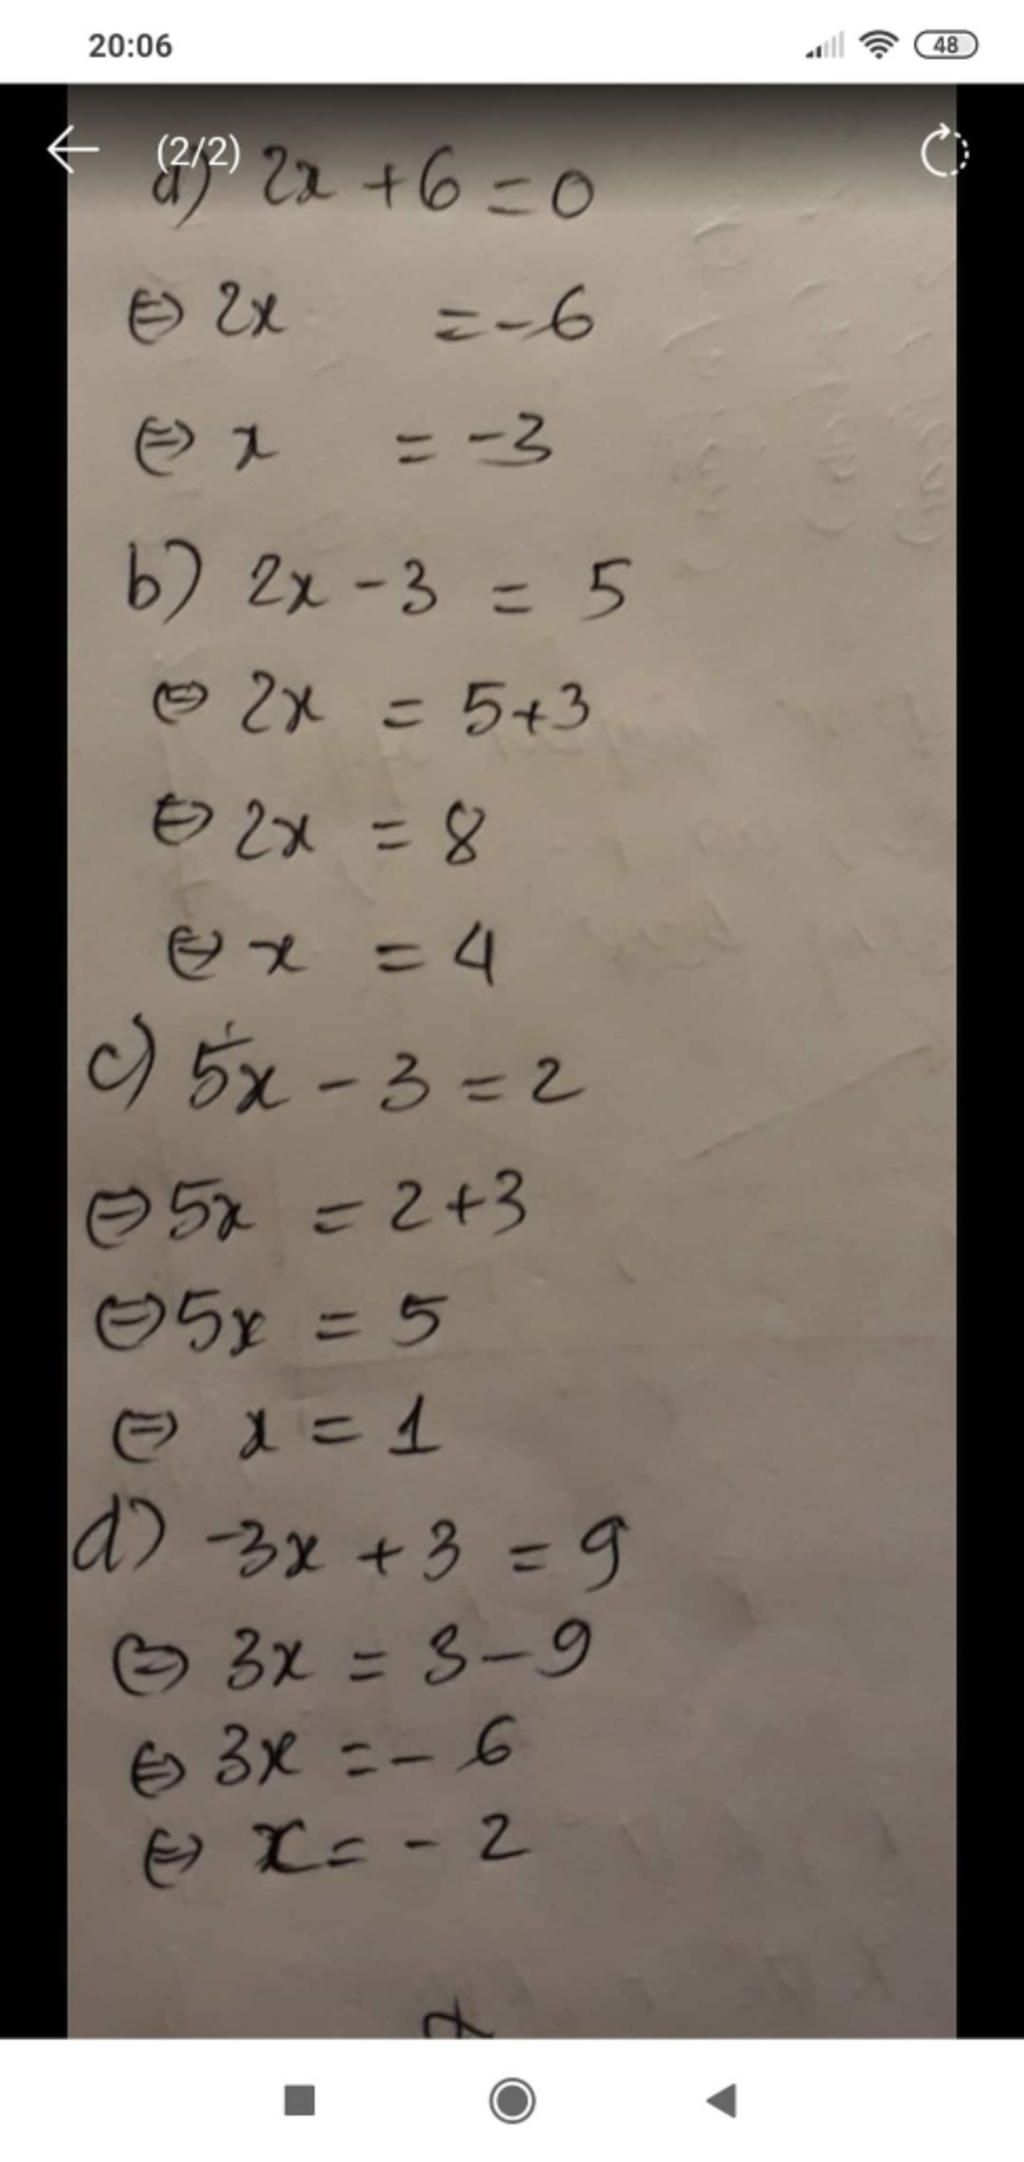 20:06
48
(2/2)
a) 2x + 6 = 0
⇔ 2x = -6
⇔ x = -3
b) 2x - 3 = 5
⇔ 2x = 5+3
⇔ 2x = 8
⇔ x = 4
c) 5x - 3 = 2
⇔ 5x = 2+3
⇔ 5x = 5
⇔ x = 1
d) -3x + 3 = 9
⇔ 3x = 3-9
⇔ 3x = -6
⇔ x = -2